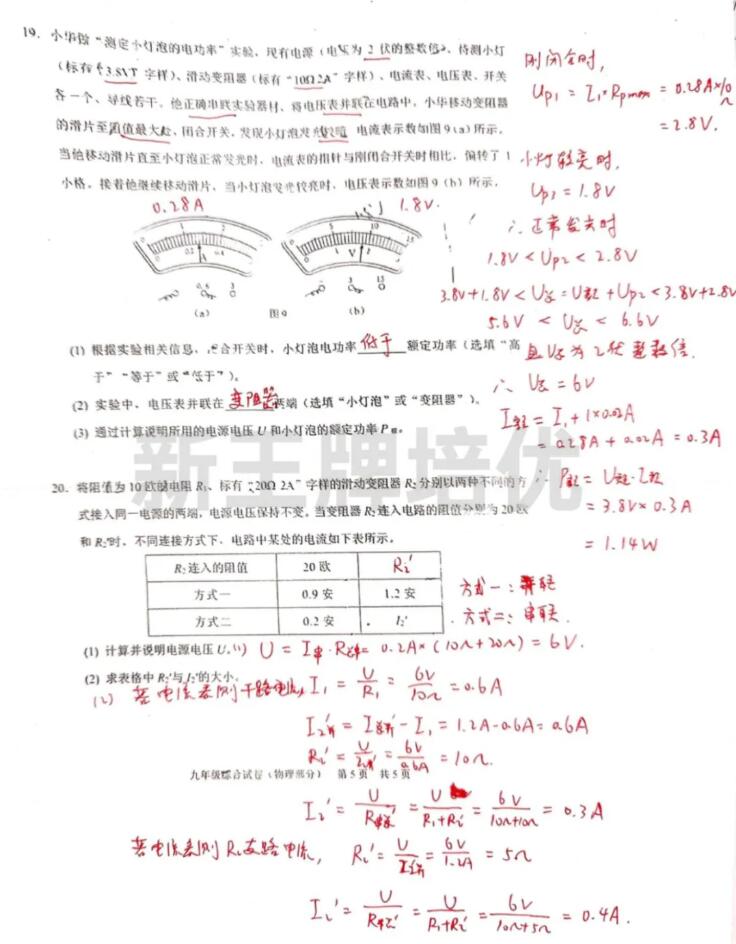 19. 小华做“测定小灯泡的电功率”实验，现有电源（电压为 2 伏的整数倍）、待测小灯
（标有“3.8V”字样）、滑动变阻器（标有“10Ω 2A”字样）、电流表、电压表、开关
各一个、导线若干。他正确串联实验器材，将电压表并联在电路中，小华移动变阻器
的滑片至阻值最大处，闭合开关，发现小灯泡发光较暗，电流表示数如图 9（a）所示。
当他移动滑片直至小灯泡正常发光时，电流表的指针与刚闭合开关时相比，偏转了 1
小格。接着他继续移动滑片，当小灯泡发光较亮时，电压表示数如图 9（b）所示。
刚闭合时，
Up1 = I1·Rpmax = 0.28A×10Ω
= 2.8V.
小灯较亮时，
Up3 = 1.8V
∴ 正常发光时
1.8V < Up2 < 2.8V
3.8V+1.8V < U总 = U额 + Up2 < 3.8V+2.8V
5.6V < U总 < 6.6V
且U总为2伏整数倍.
∴ U总 = 6V
I额 = I1 + 1×0.02A
= 0.28A + 0.02A = 0.3A
∴ P额 = U额·I额
= 3.8V × 0.3A
= 1.14W
0.28A
1.8V.
0 1 2 3
0 0.2 0.4
A
- 0.6 3
(a)
0 5 10 15
0 1 2
V
- 3 15
(b)
图 9
(1) 根据实验相关信息，闭合开关时，小灯泡电功率 低于 额定功率（选填“高
于”“等于”或“低于”）。
(2) 实验中，电压表并联在 变阻器 两端（选填“小灯泡”或“变阻器”）。
(3) 通过计算说明所用的电源电压 U 和小灯泡的额定功率 P额。
新王牌培优
20. 将阻值为 10 欧的电阻 R1、标有“20Ω 2A”字样的滑动变阻器 R2 分别以两种不同的方
式接入同一电源的两端，电源电压保持不变。当变阻器 R2 连入电路的阻值分别为 20 欧
和 R2'时，不同连接方式下，电路中某处的电流如下表所示。
R2 连入的阻值 20 欧 R2'
方式一 0.9 安 1.2 安
方式二 0.2 安 I2'
方式一：并联
方式二：串联.
(1) 计算并说明电源电压 U。
(1) U = I串·R总串 = 0.2A×(10Ω+20Ω) = 6V.
(2) 求表格中 R2'与 I2'的大小。
(2) 若电流表测干路电流, I1 = U/R1 = 6V/10Ω = 0.6A
I2并' = I总并' - I1 = 1.2A-0.6A = 0.6A
R2' = U/I2并' = 6V/0.6A = 10Ω.
九年级综合试卷（物理部分） 第 5 页 共 5 页
I2' = U/R串总' = U/R1+R2' = 6V/10Ω+10Ω = 0.3A
若电流表测R2支路电流, R2' = U/I2并' = 6V/1.2A = 5Ω
I2' = U/R串总' = U/R1+R2' = 6V/10Ω+5Ω = 0.4A.